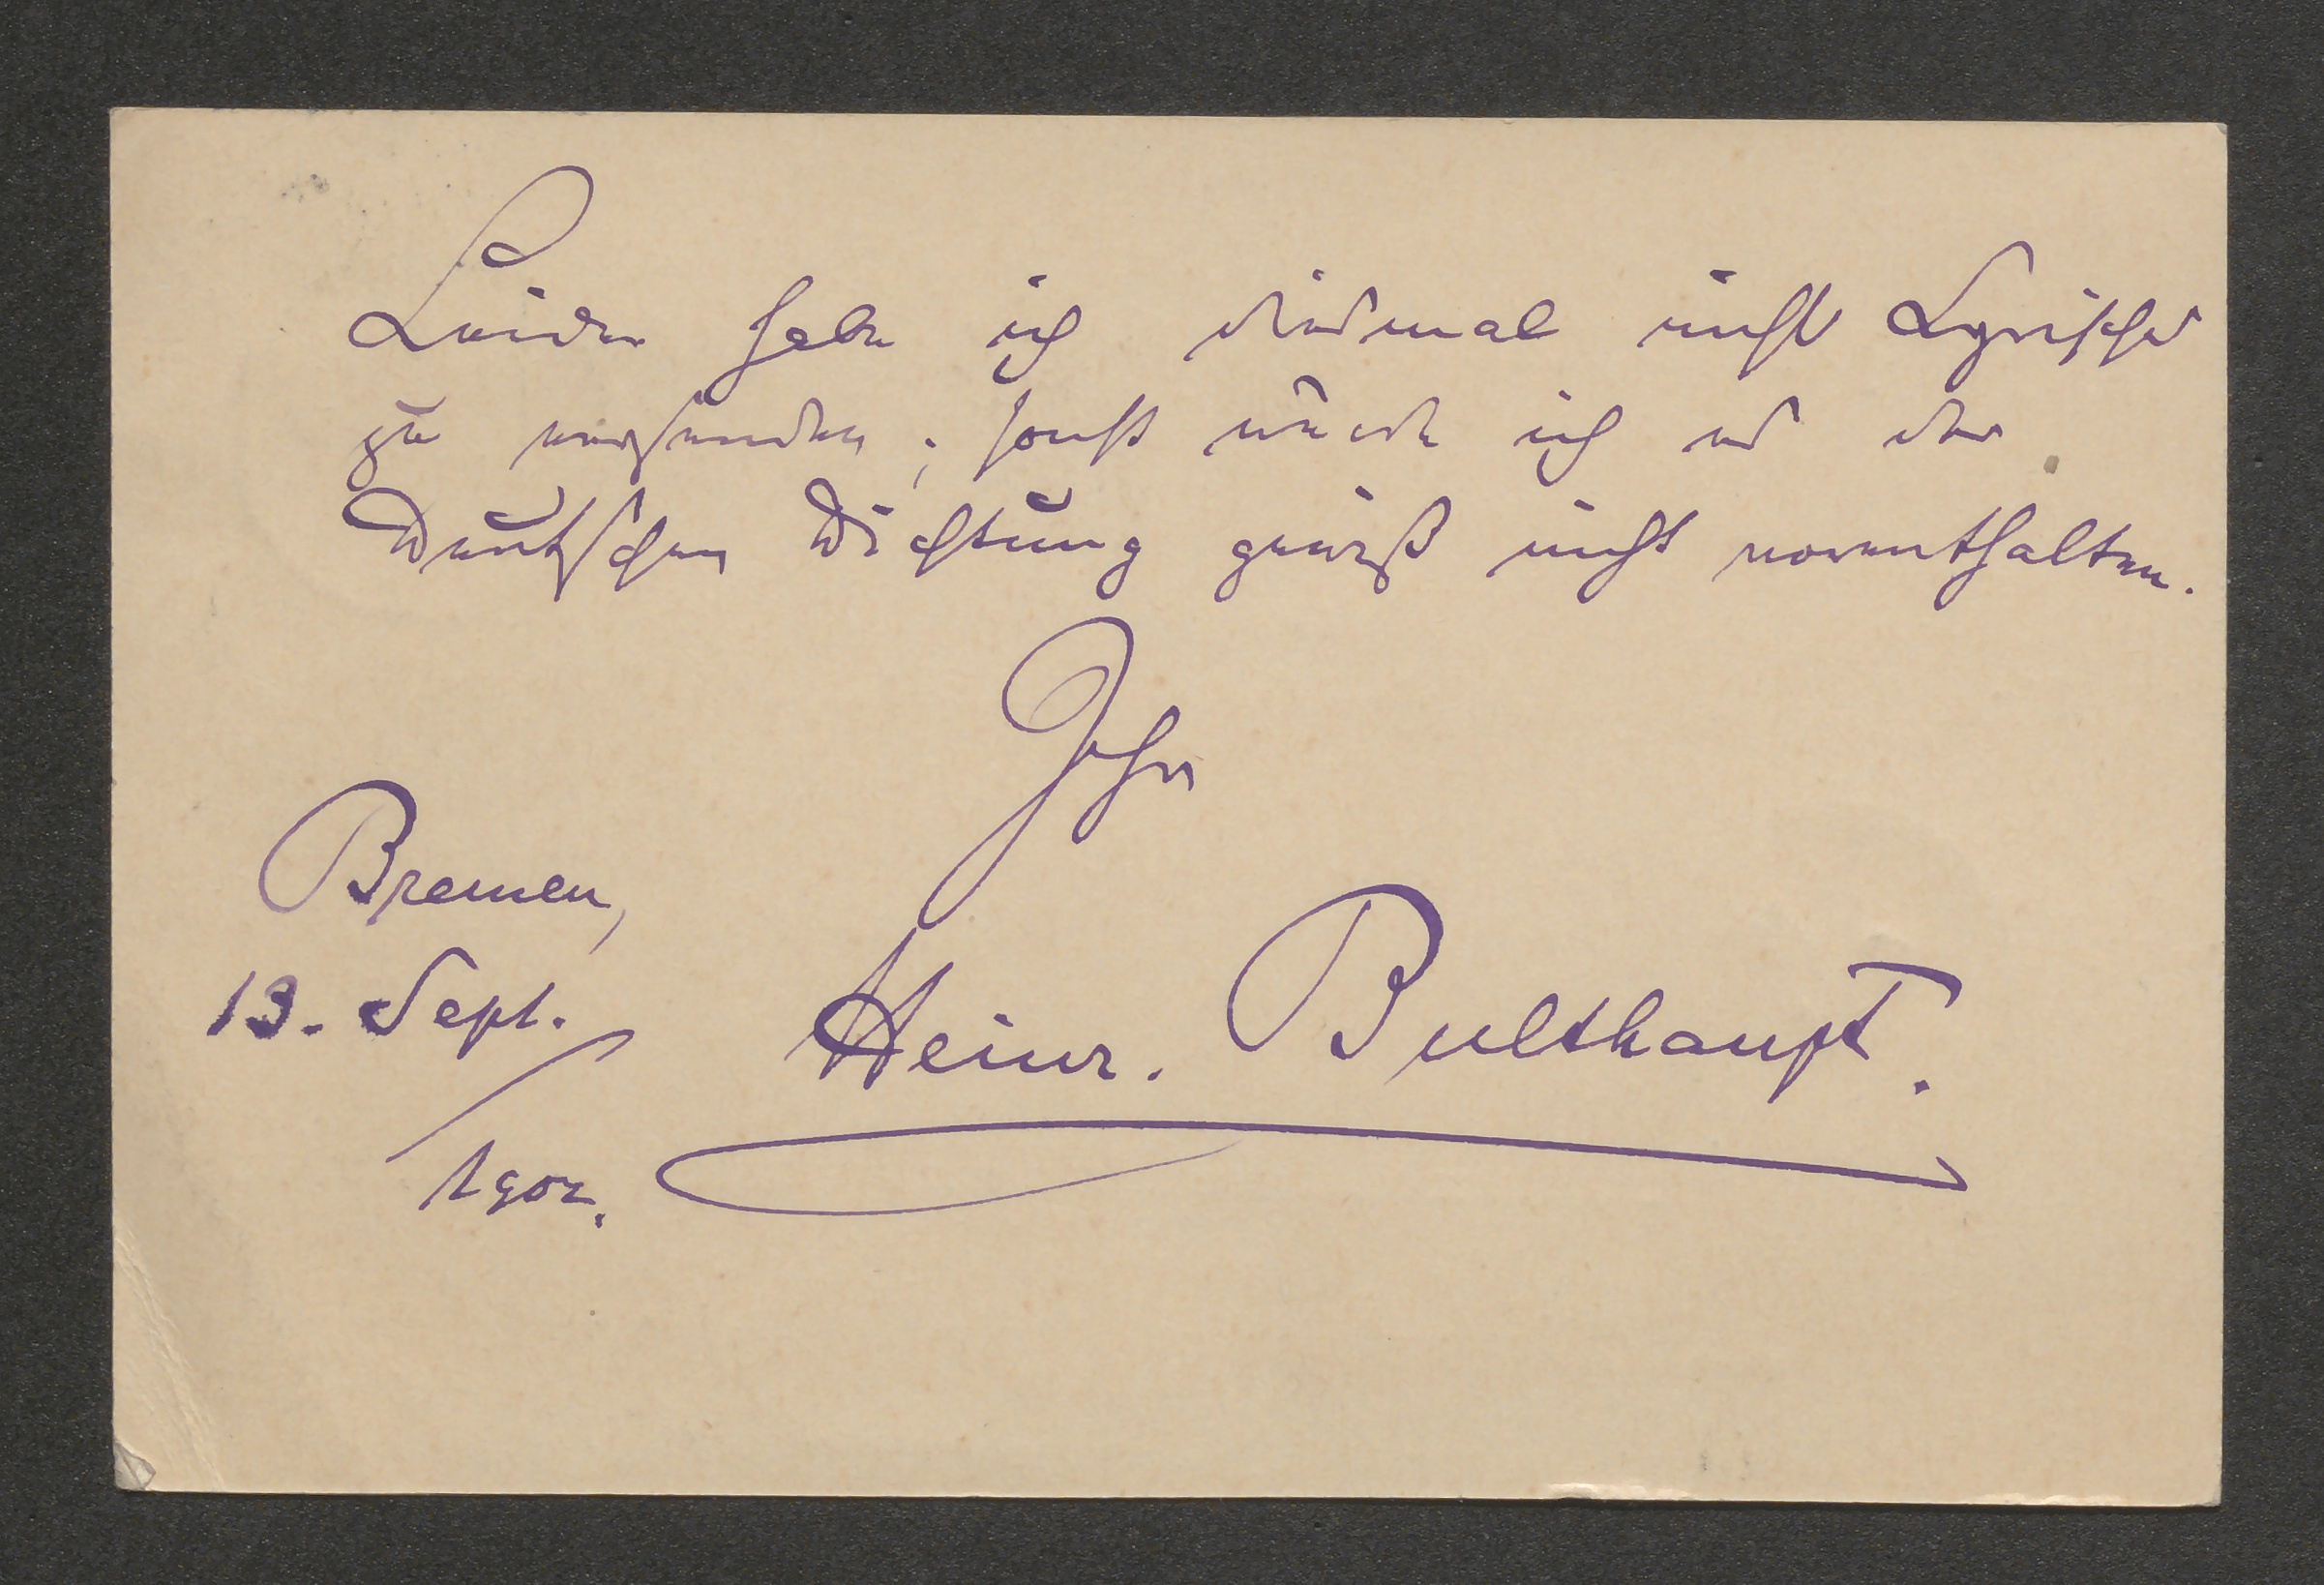 Leider habe ich diesmal nichts Lyrisches
zu versenden; sonst würde ich es der
Deutschen Dichtung gewiß nicht vorenthalten.
Ihr
Bremen,
13. Sept. Heinr. Bulthaupt.
1902.